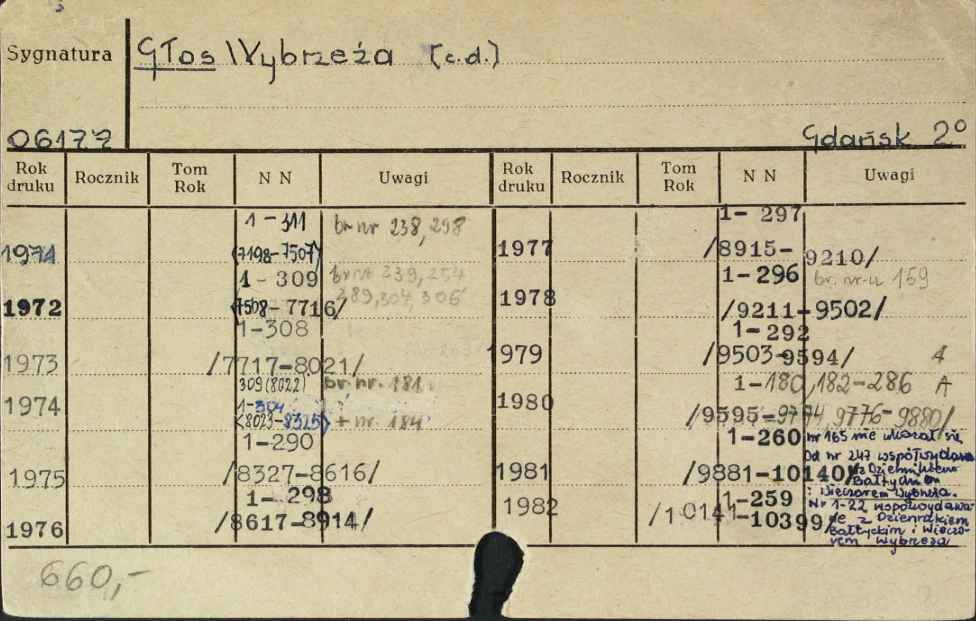 Sygnatura
Głos Wybrzeża (c.d.)
06177
Gdańsk 2°
Rok druku Rocznik Tom Rok N N Uwagi Rok druku Rocznik Tom Rok N N Uwagi
1-311 br nr 238, 298
1971 (7198-7507)
1-309 br nr 239, 254
289, 304, 306
1972 (7508-7716/
1-308
1973 /7717-8021/
309 (8022) br. nr. 181.
1974 1-304
<8023-8325> + nr. 184
1-290
1975 /8327-8616/
1-298
1976 /8617-8914/
1-297
1977 /8915-9210/
1-296 br. nr-u 159
1978 /9211-9502/
1-292
1979 /9503-9594/ A
1-180, 182-286 A
1980 /9595-9774, 9776-9880/
1-260 nr 165 nie ukazał się
Od nr 247 współwydawane
1981 /9881-10140/ z Dziennikiem
Bałtyckim
i Wieczorem Wybrzeża.
1-259 Nr 1-22 współwydawa-
1982 /10141-10399/ ne z Dziennikiem
Bałtyckim i Wieczo-
rem Wybrzeża
660,-